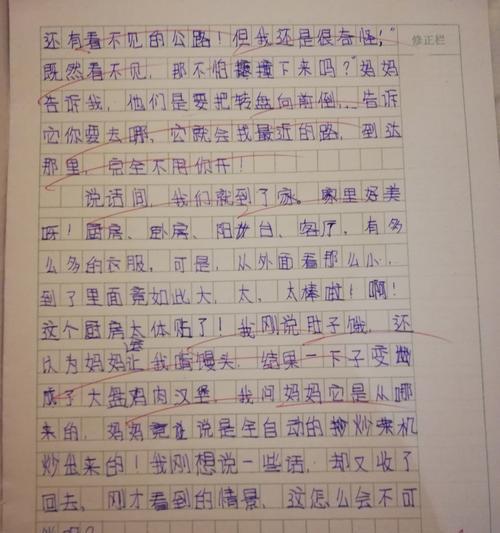 还有看不见的公路！但我还是很奇怪！”
修正栏
既然看不见，那不怕撞下来吗？”妈妈
告诉我，他们是要把转盘向前倒…告诉
它你要去哪，它就会找最近的路，到达
那里，完全不用你开！
说话间，我们就到了家。家里好美
呀！厨房、卧房、阳台、客厅，有多
么多的衣服，可是，从外面看那么小，
到了里面竟如此大，太，太棒啦！啊！
这个厨房太体贴了！我刚说肚子饿，还
以为妈妈会让我啃馒头，结果一下子变
成了大盘鸡肉汉堡，我问妈妈它是从哪
来的，妈妈竟说是全自动的炒菜机
炒出来的！我刚想说一些话，却又收了
回去，刚才看到的情景，这怎么会不可
能呢？